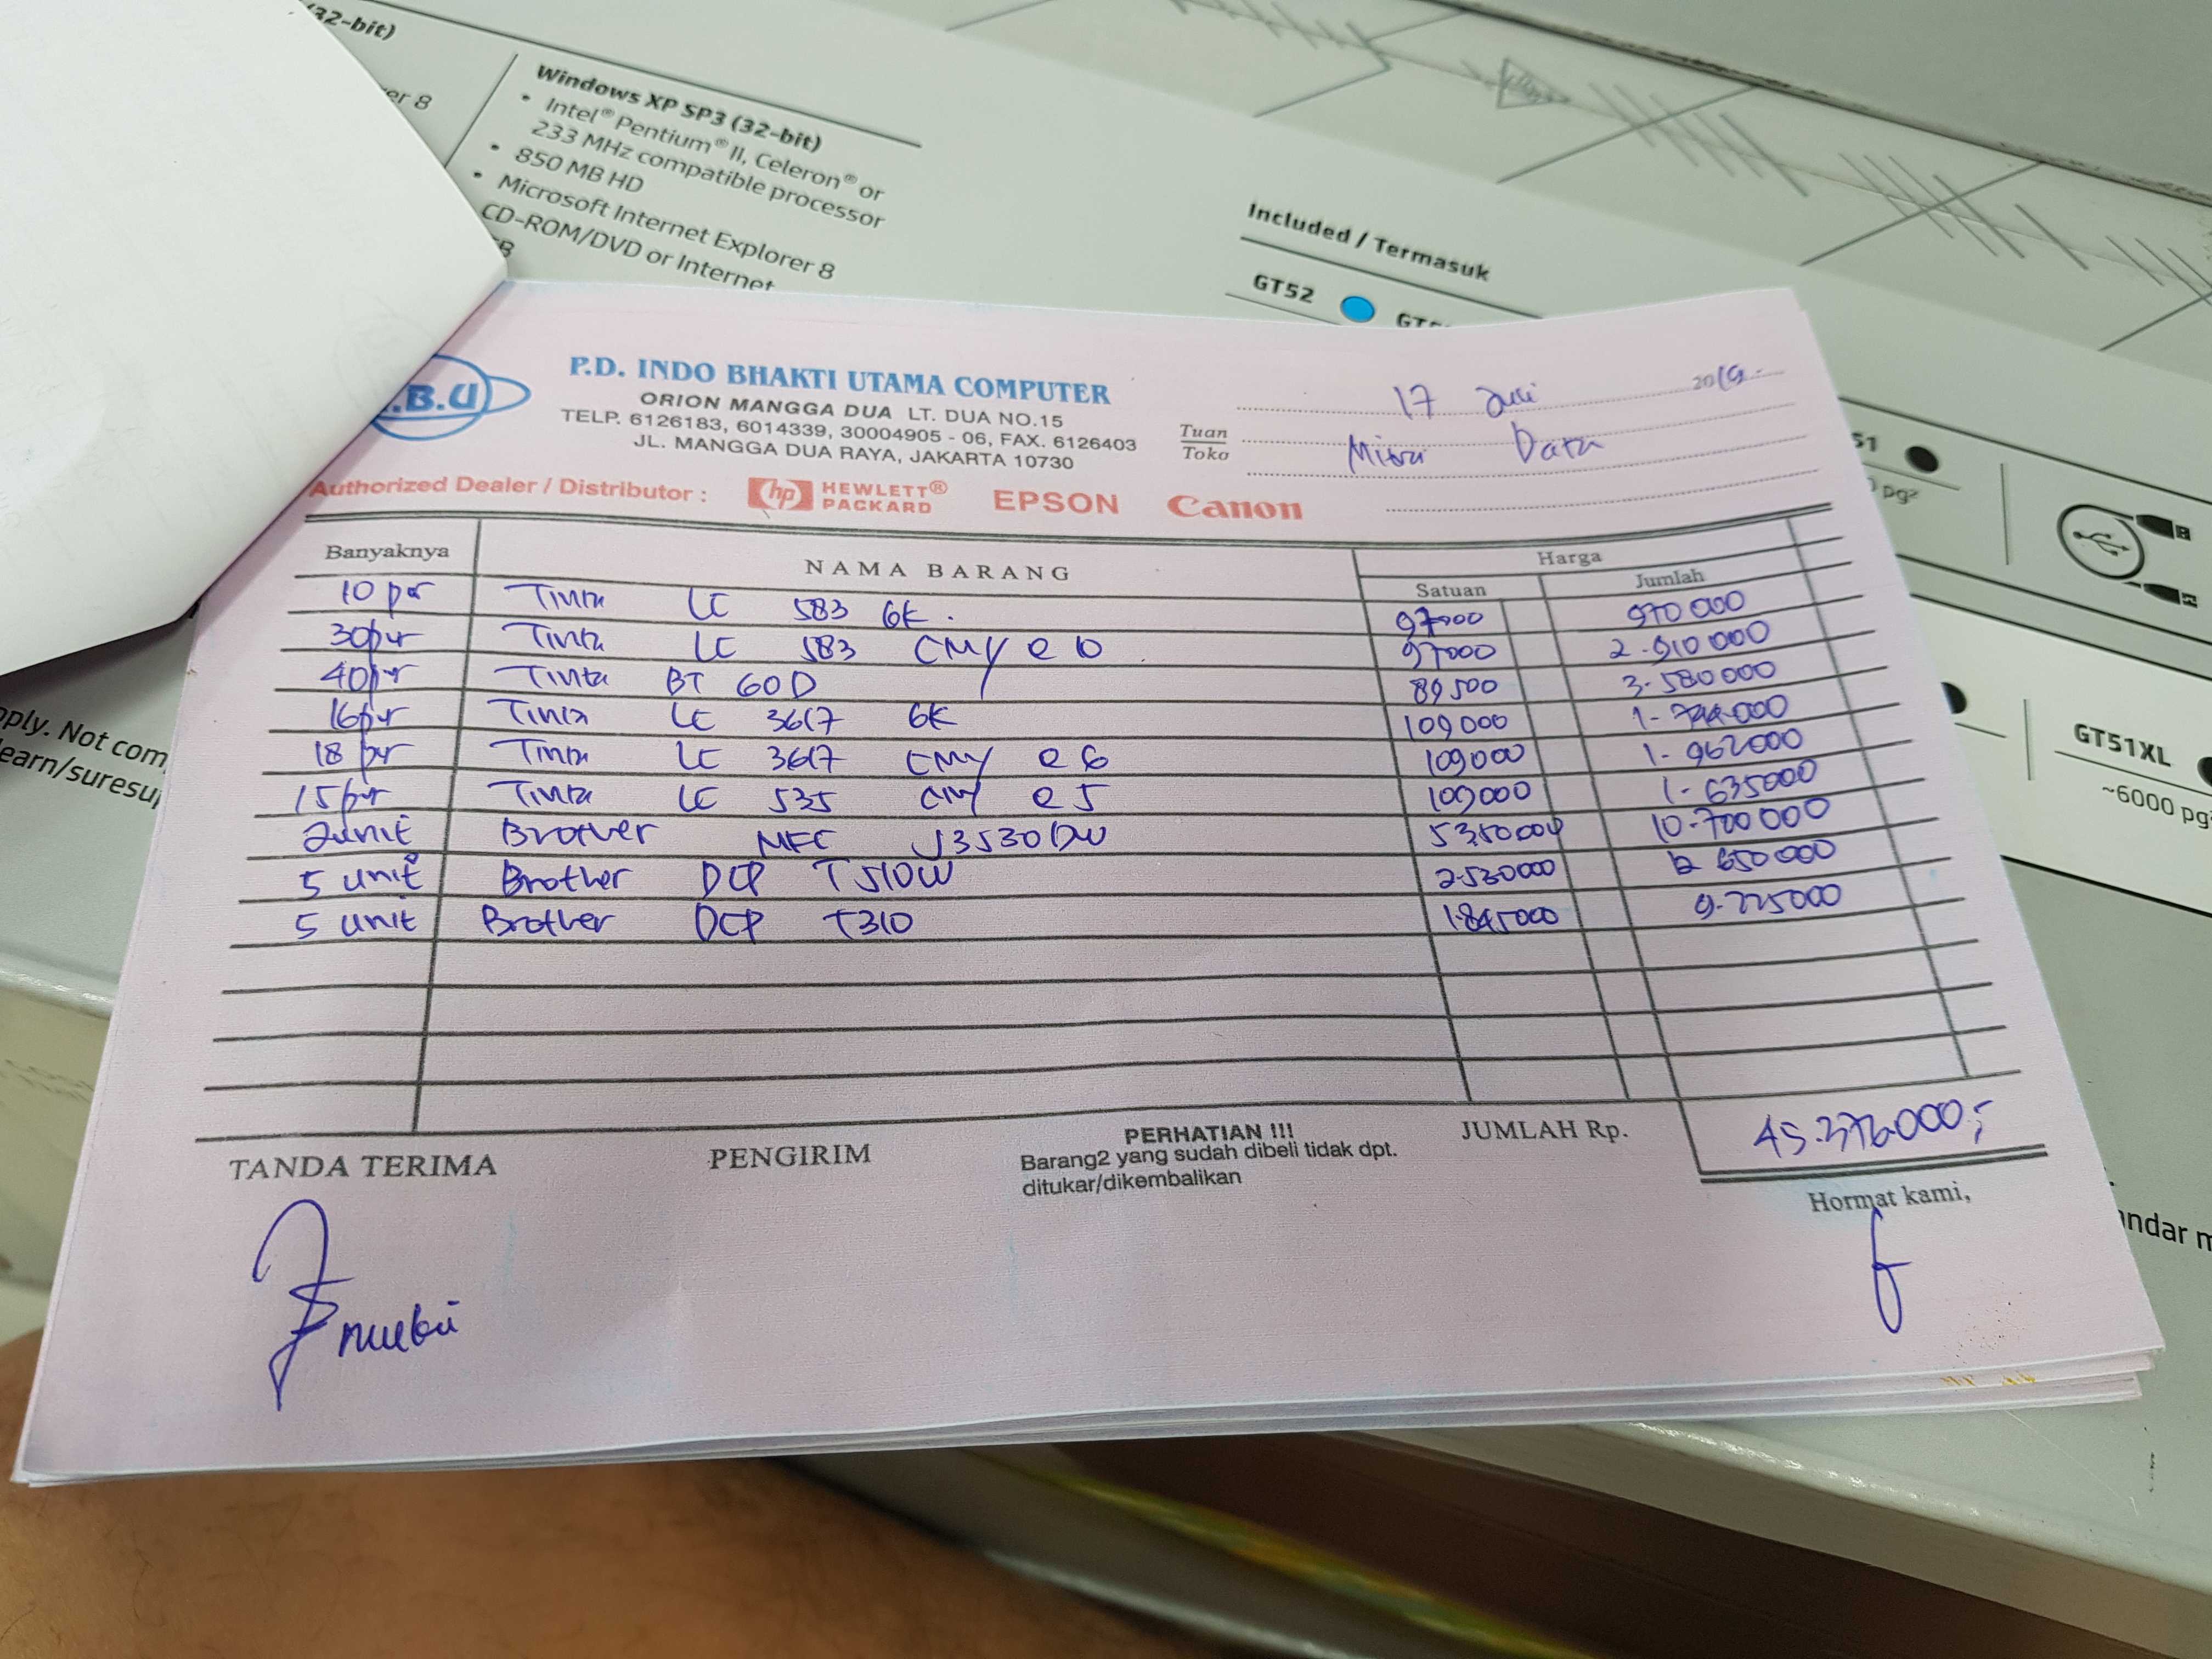 (32-bit)
er 8
Windows XP SP3 (32-bit)
• Intel® Pentium® II, Celeron® or
233 MHz compatible processor
• 850 MB HD
• Microsoft Internet Explorer 8
CD-ROM/DVD or Internet
Included / Termasuk
GT52
51
pg²
GT51XL
~6000 pg
pply. Not com
earn/suresup
ndar m
.B.U
P.D. INDO BHAKTI UTAMA COMPUTER
ORION MANGGA DUA LT. DUA NO.15
TELP. 6126183, 6014339, 30004905 - 06, FAX. 6126403
JL. MANGGA DUA RAYA, JAKARTA 10730
17 Juli 2019
Tuan
Toko
Mitra Data
Authorized Dealer / Distributor : hp HEWLETT® PACKARD EPSON Canon
Banyaknya NAMA BARANG Harga
Satuan Jumlah
10 pcr Tinta LC 583 6K. 97000 970 000
30pcr Tinta LC 583 CMY @ 10 97000 2.910 000
40pcr Tinta BT 60D 89500 3.580000
16pcr Tinta LC 3617 6K 109000 1.744.000
18 pcr Tinta LC 3617 CMY @ 6 109000 1.962000
15pcr Tinta LC 535 CMY @ 5 109000 1.635000
2unit Brother MFC J3530DW 5350000 10.700 000
5 unit Brother DCP T510W 2.530000 12 650000
5 unit Brother DCP T310 1.845000 9.225000
TANDA TERIMA PENGIRIM
PERHATIAN !!!
Barang2 yang sudah dibeli tidak dpt.
ditukar/dikembalikan
JUMLAH Rp. 45.376.000,-
Hormat kami,